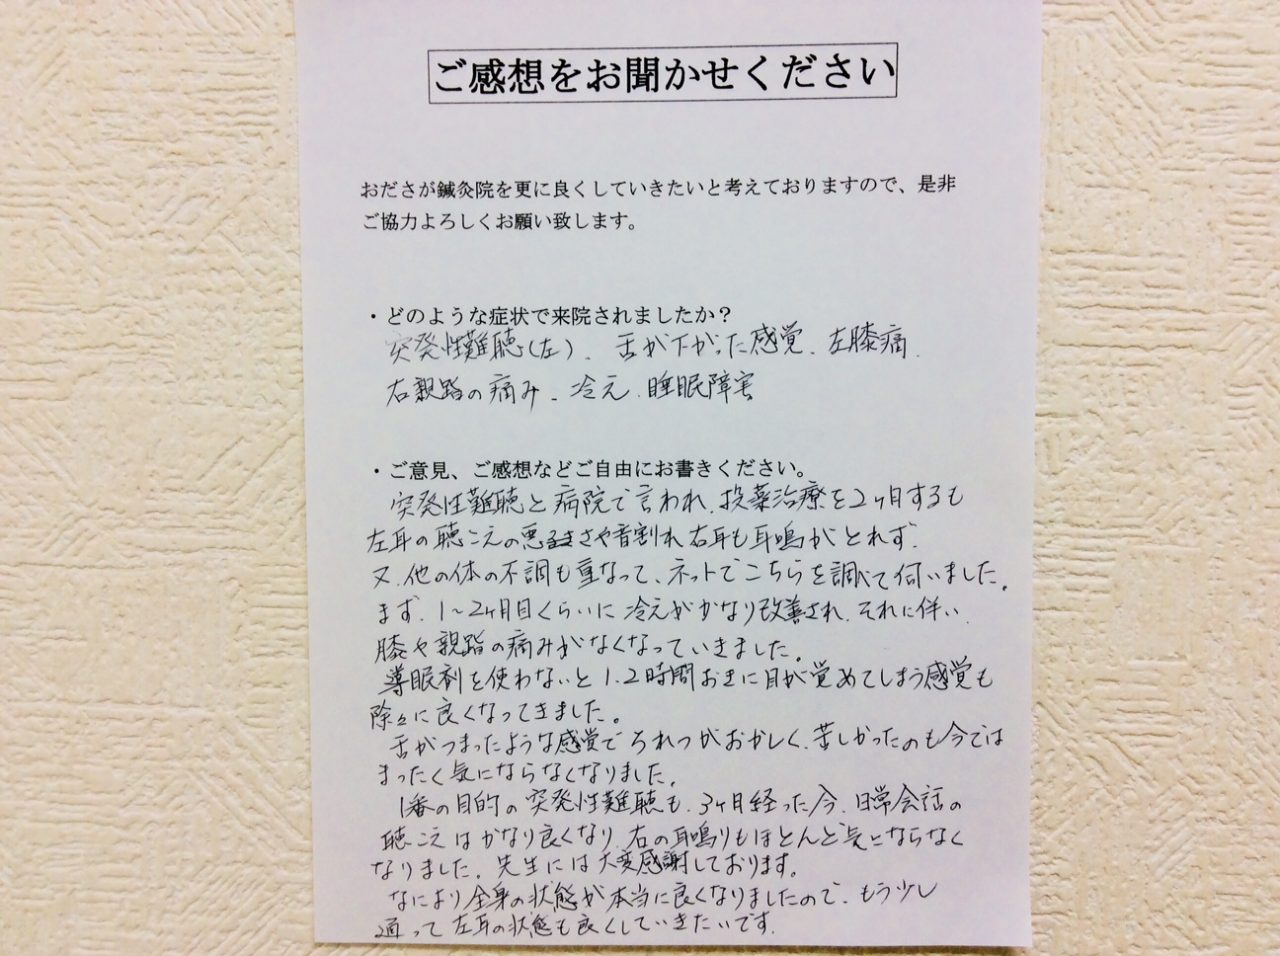 ご感想をお聞かせください
おださが鍼灸院を更に良くしていきたいと考えておりますので、是非
ご協力よろしくお願い致します。
・どのような症状で来院されましたか？
突発性難聴(左)、舌が下がった感覚、左膝痛、
右親踏の痛み、冷え、睡眠障害
・ご意見、ご感想などご自由にお書きください。
突発性難聴と病院で言われ、投薬治療を2ヶ月するも
左耳の聴こえの悪さや音割れ右耳も耳鳴がとれず、
又、他の体の不調も重なって、ネットでこちらを調べて伺いました。
まず、1～2ヶ月目くらいに冷えがかなり改善され、それに伴い、
膝や親踏の痛みがなくなっていきました。
導眠剤を使わないと1、2時間おきに目が覚めてしまう感覚も
除々に良くなってきました。
舌がつまったような感覚でろれつがおかしく、苦しかったのも今では
まったく気にならなくなりました。
1番の目的の突発性難聴も、3ヶ月経った今、日常会話の
聴こえはかなり良くなり、右の耳鳴りもほとんど気にならなく
なりました。先生には大変感謝しております。
なにより全身の状態が本当に良くなりましたので、もう少し
通って左耳の状態も良くしていきたいです。